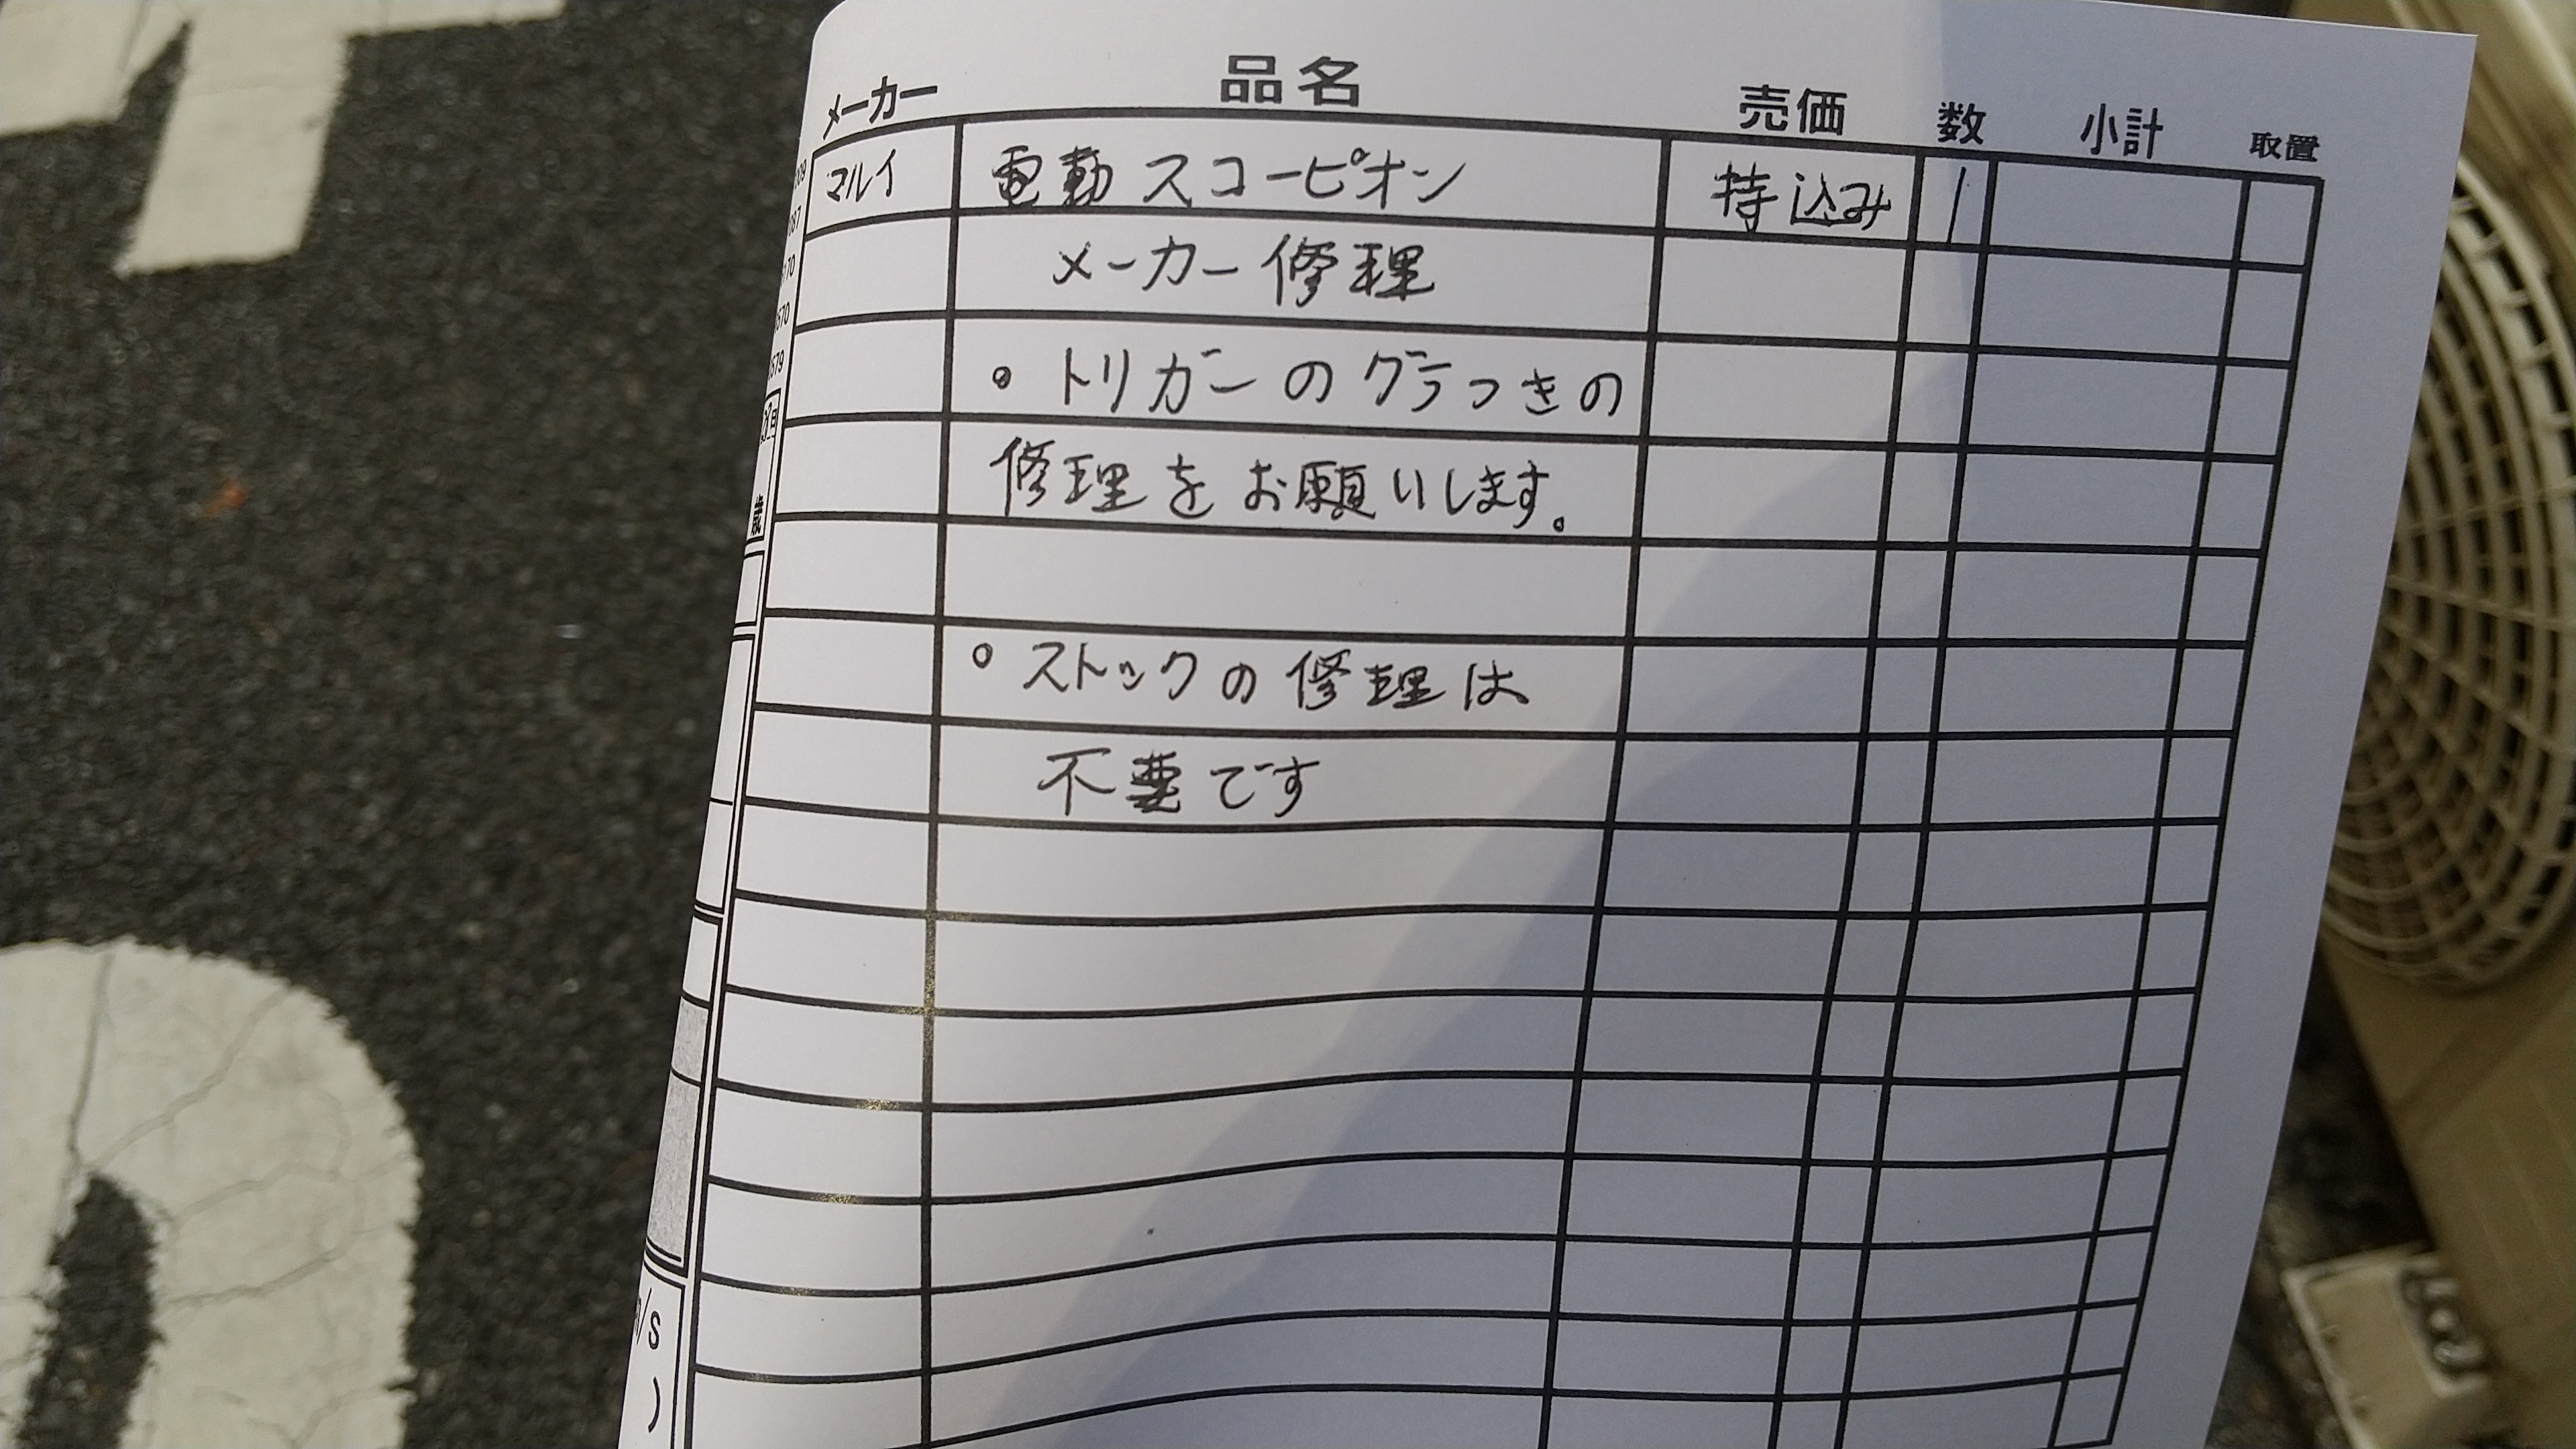 メーカー 品名 売価 数 小計 取置
マルイ 電動スコーピオン 持込み 1
メーカー修理
。トリガーのグラつきの
修理をお願いします。
。ストックの修理は
不要です
歳
/s
)